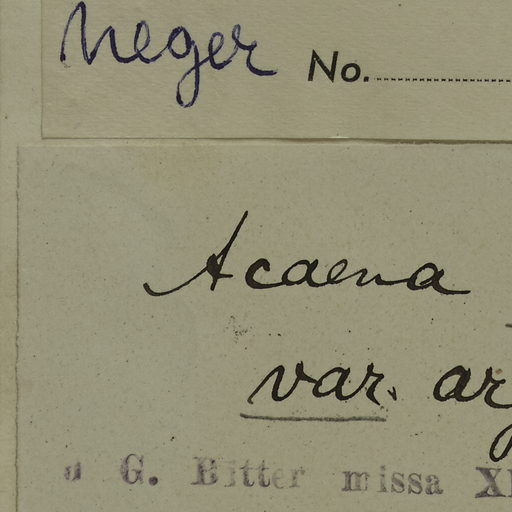 Neger No.
Acaena
var. arg
a G. Bitter missa XI